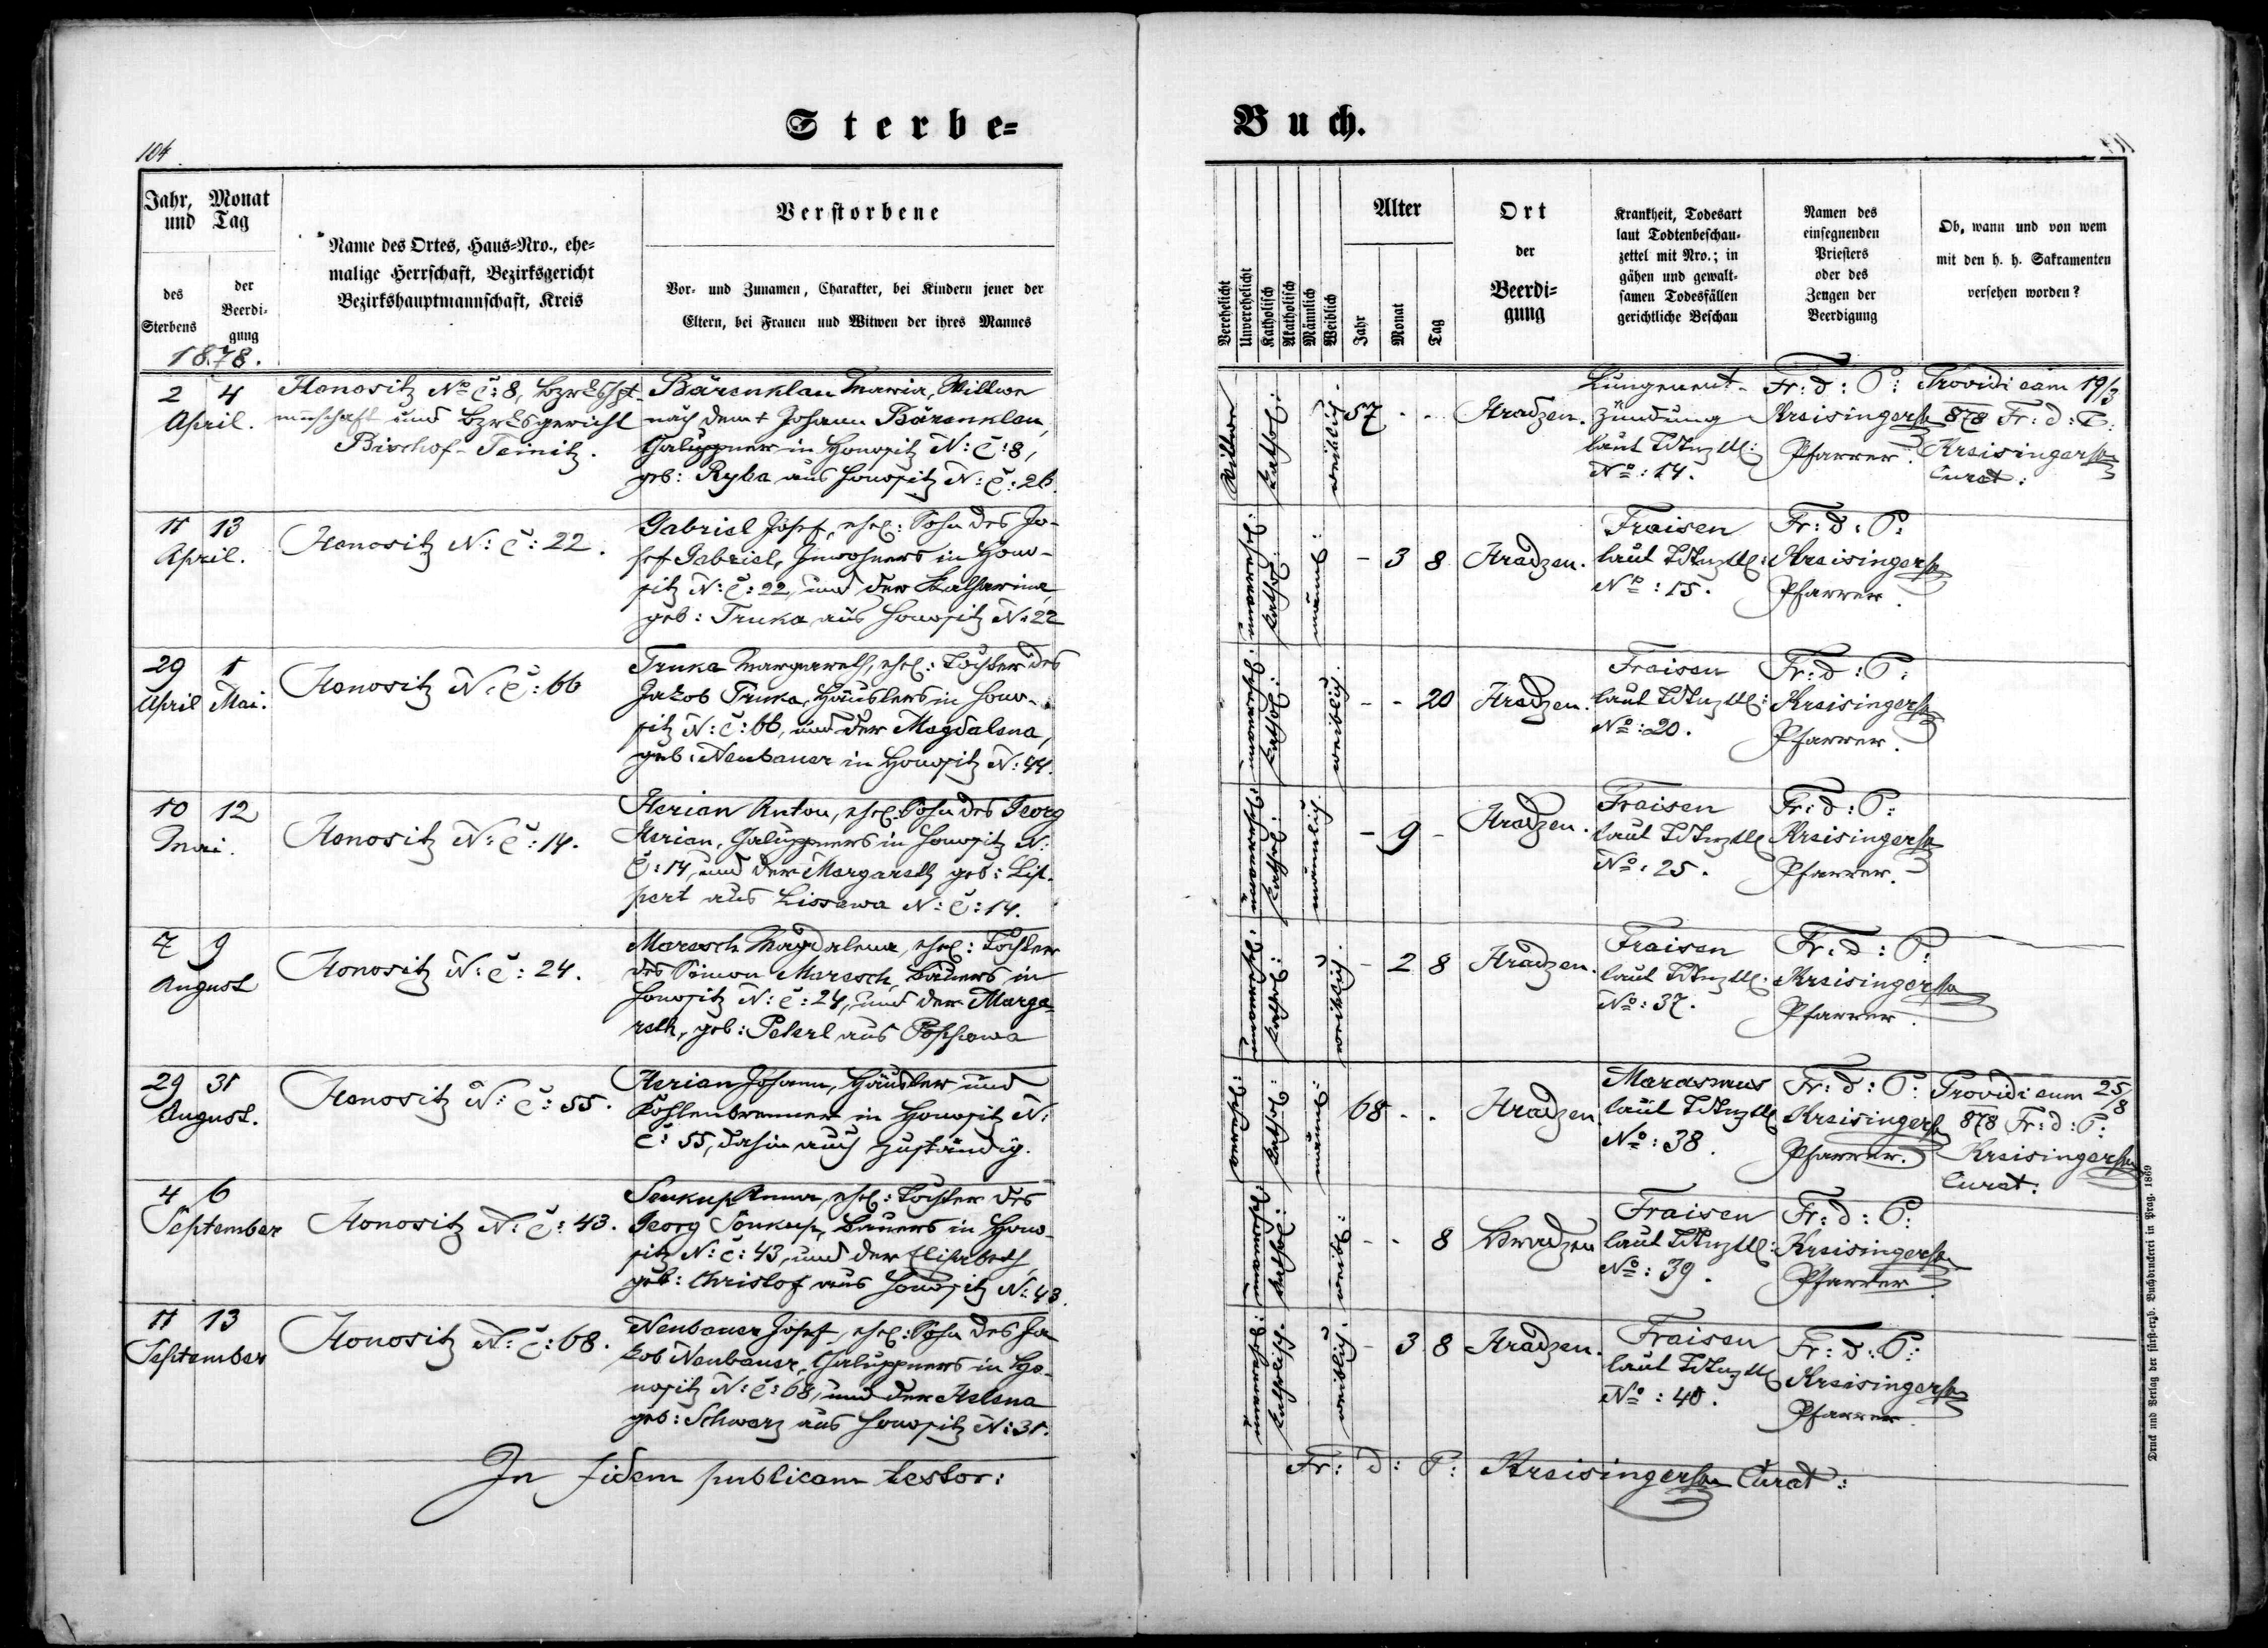 Sterbe=
Buch.
104
Jahr, Monat und Tag
des Sterbens
der Beerdigung
Name des Ortes, Haus=Nro., ehe=
malige Herrschaft, Bezirksgericht
Bezirkshauptmannschaft, Kreis
Verstorbene
Vor- und Zunamen, Charakter, bei Kindern jener der
Eltern, bei Frauen und Witwen der ihres Mannes
Verehelicht
Unverehelicht
Katholisch
Akatholisch
Männlich
Weiblich
Alter
Jahr
Monat
Tag
Ort
der
Beerdi=
gung
Krankheit, Todesart
laut Todtenbeschau-
zettel mit Nro.; in
gähen und gewalt-
samen Todesfällen
gerichtliche Beschau
Namen des
einsegnenden
Priesters
oder des
Zeugen der
Beerdigung
Ob, wann und von wem
mit den h. h. Sakramenten
versehen worden?
1878.
2 4
April.
Honositz No č: 8,
und Bzrksgericht
Bischof-Teinitz.
Bärenklau Maria, Wittwe
nach dem † Johann Bärenklau,
Chaluppner in Honositz N: č: 8,
geb: Ryba aus Honositz N: č: 26.
Wittwe
kathol:
weiblich.
57 - -
Hradzen.
Lungenent-
zündung
laut
No: 14.
Fr: d: P:
Kreisinger
Pfarrer.
Providi eam 19/3
878 Fr: d: P:
Kreisinger
Curat:
11 13
April.
Honositz N: č: 22.
Gabriel Josef, ehel: Sohn des Jo-
sef Gabriel, Inwohners in Hono-
sitz N: č: 22, und der Katharina,
geb: Truka aus Honositz N: 22
kathol:
männl:
- 3 8
Hradzen.
Fraisen
laut
No: 15.
Fr: d: P:
Kreisinger
Pfarrer.
29 1
April Mai.
Honositz N: č: 66
Truka Margareth, ehel: Tochter des
Jakob Truka, Häuslers in Hono-
sitz N: č: 66, und der Magdalena,
geb: Neubauer in Honositz N: 44.
kathol:
weiblich.
- - 20
Hradzen.
Fraisen
laut
No: 20.
Fr: d: P:
Kreisinger
Pfarrer.
10 12
Mai.
Honositz N: č: 14.
Herian Anton, ehel: Sohn des Georg
Herian, Chaluppners in Honositz N:
č: 14, und der Margareth geb: Lip-
pert aus Lissowa N: č: 14.
kathol:
männlich.
- 9 -
Hradzen.
Fraisen
laut
No: 25.
Fr: d: P:
Kreisinger
Pfarrer.
7 9
August
Honositz N: č: 24.
Maresch Magdalena, ehel: Tochter
des Simon Maresch, Bauers in
Honositz N: č: 24, und der Marga-
reth, geb: Peterl aus
kathol:
weiblich.
- 2 8
Hradzen.
Fraisen
laut
No: 37.
Fr: d: P:
Kreisinger
Pfarrer.
29 31
August.
Honositz N: č: 55.
Herian Johann, Häusler und
Kohlenbrenner in Honositz N:
č: 55, dahin auch zuständig.
kathol:
männl:
68 - -
Hradzen
Marasmus
laut
No: 38.
Fr: d: P:
Kreisinger
Pfarrer.
Providi eum 25/8
878 Fr: d: P:
Kreisinger
Curat.
4 6
September
Honositz N: č: 43.
Soukup Anna, ehel: Tochter des
Georg Soukup, Bauers in Hono-
sitz N: č: 43, und der Elisabeth,
geb: Christof aus Honositz N: 43.
kathol:
weibl:
- - 8
Hradzen
Fraisen
laut
No: 39.
Fr: d: P:
Kreisinger
Pfarrer
11 13
September
Honositz N: č: 68.
Neubauer Josef, ehel: Sohn des Ja-
kob Neubauer, Chaluppners in Ho-
nositz N: č: 68, und der Helena
geb: Schwarz aus Honositz N: 31.
katholisch.
weiblich.
- 3 8
Hradzen.
Fraisen
laut
No: 40.
Fr: d: P:
Kreisinger
Pfarrer.
In fidem publicam testor:
Fr: d: P: Kreisinger Curat:
Druck und Verlag der fürst-erzb. Buchdruckerei in Prag. 1869